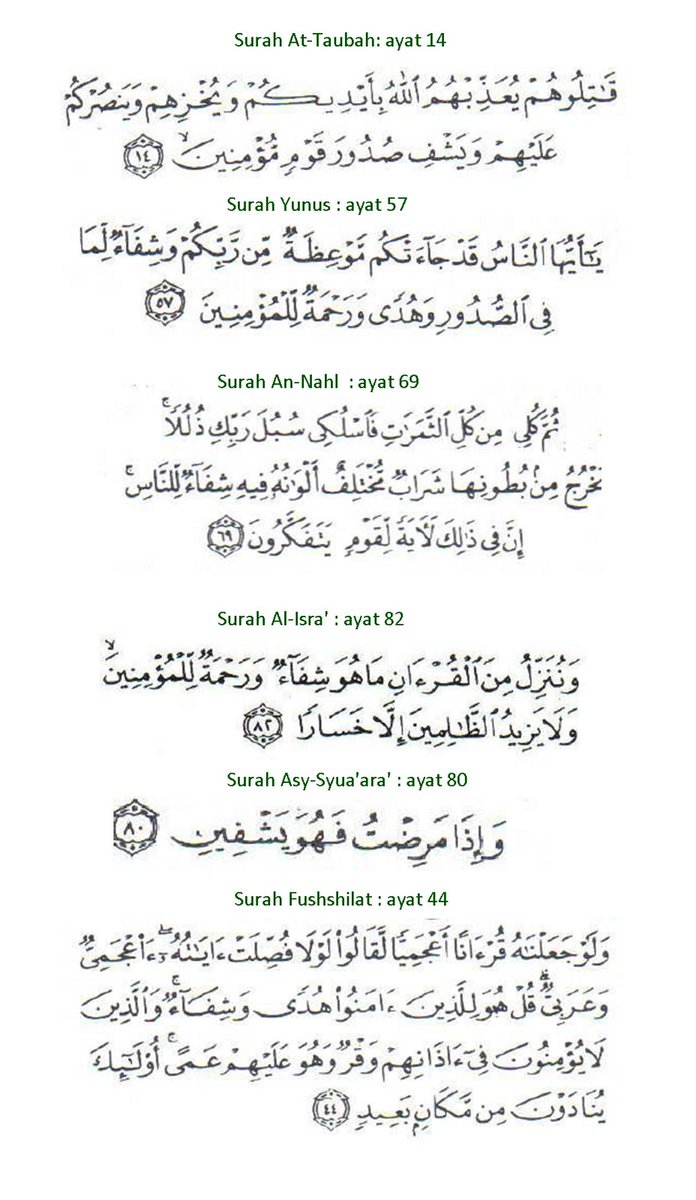 Surah At-Taubah: ayat 14
قَـٰتِلُوهُمْ يُعَذِّبْهُمُ ٱللَّهُ بِأَيْدِيكُمْ وَيُخْزِهِمْ وَيَنصُرْكُمْ
عَلَيْهِمْ وَيَشْفِ صُدُورَ قَوْمٍ مُّؤْمِنِينَ ۙ ١٤
Surah Yunus : ayat 57
يَـٰٓأَيُّهَا ٱلنَّاسُ قَدْ جَآءَتْكُم مَّوْعِظَةٌ مِّن رَّبِّكُمْ وَشِفَآءٌ لِّمَا
فِى ٱلصُّدُورِ وَهُدًى وَرَحْمَةٌ لِّلْمُؤْمِنِينَ ٥٧
Surah An-Nahl : ayat 69
ثُمَّ كُلِى مِن كُلِّ ٱلثَّمَرَٰتِ فَٱسْلُكِى سُبُلَ رَبِّكِ ذُلُلًا ۚ
يَخْرُجُ مِنۢ بُطُونِهَا شَرَابٌ مُّخْتَلِفٌ أَلْوَٰنُهُۥ فِيهِ شِفَآءٌ لِّلنَّاسِ ۗ
إِنَّ فِى ذَٰلِكَ لَـَٔايَةً لِّقَوْمٍ يَتَفَكَّرُونَ ٦٩
Surah Al-Isra' : ayat 82
وَنُنَزِّلُ مِنَ ٱلْقُرْءَانِ مَا هُوَ شِفَآءٌ وَرَحْمَةٌ لِّلْمُؤْمِنِينَ ۙ
وَلَا يَزِيدُ ٱلظَّـٰلِمِينَ إِلَّا خَسَارًا ٨٢
Surah Asy-Syua'ara' : ayat 80
وَإِذَا مَرِضْتُ فَهُوَ يَشْفِينِ ٨٠
Surah Fushshilat : ayat 44
وَلَوْ جَعَلْنَـٰهُ قُرْءَانًا أَعْجَمِيًّا لَّقَالُوا۟ لَوْلَا فُصِّلَتْ ءَايَـٰتُهُۥٓ ۖ ءَا۬عْجَمِىٌّ
وَعَرَبِىٌّ ۗ قُلْ هُوَ لِلَّذِينَ ءَامَنُوا۟ هُدًى وَشِفَآءٌ ۚ وَٱلَّذِينَ
لَا يُؤْمِنُونَ فِىٓ ءَاذَانِهِمْ وَقْرٌ وَهُوَ عَلَيْهِمْ عَمًى ۚ أُو۟لَـٰٓئِكَ
يُنَادَوْنَ مِن مَّكَانٍۭ بَعِيدٍ ٤٤